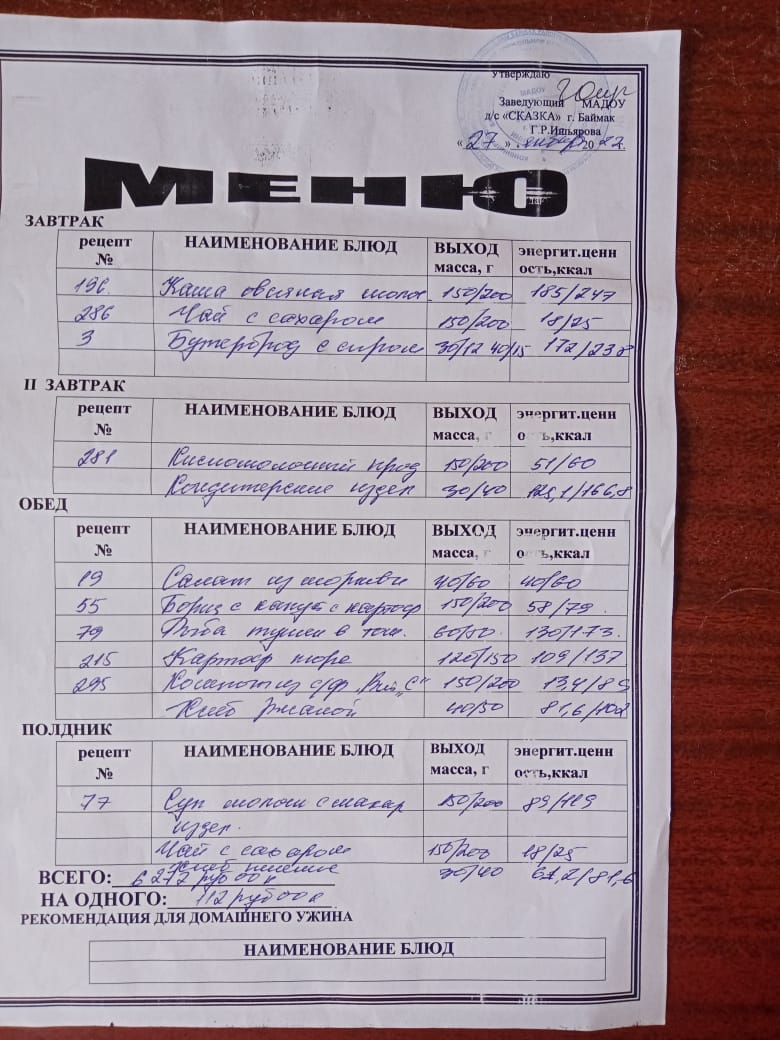 Утверждаю
Заведующий МАДОУ
д/с «СКАЗКА» г. Баймак
Г.Р.Ишьярова
« 27 » январ 20 22г.
МЕНЮ
ЗАВТРАК
рецепт № НАИМЕНОВАНИЕ БЛЮД ВЫХОД масса, г энергит.ценн ость,ккал
196 Каша овсяная молоч 150/200 185/247
286 Чай с сахаром 150/200 18/25
3 Бутерброд с сыром 30/12 40/15 172/238
II ЗАВТРАК
рецепт № НАИМЕНОВАНИЕ БЛЮД ВЫХОД масса, г энергит.ценн ость,ккал
281 Кисломолочный прод 150/200 51/60
Кондитерские издел 30/40 /166,8
ОБЕД
рецепт № НАИМЕНОВАНИЕ БЛЮД ВЫХОД масса, г энергит.ценн ость,ккал
19 Салат из моркови 40/60 40/60
55 Борщ с капуст с картоф 150/200 58/79.
79 Рыба тушен в том. 60/80. 130/173.
215 Картоф пюре 120/150 109/137
295 Компот из с/ф „Вит „С" 150/200
Хлеб ржаной 40/50 81,6/102
ПОЛДНИК
рецепт № НАИМЕНОВАНИЕ БЛЮД ВЫХОД масса, г энергит.ценн ость,ккал
77 Суп молочн с макар 150/200 89/119
издел.
Чай с сахаром 150/200 18/25
хлеб 30/40 61,2/81,6
ВСЕГО: 6272 руб 00 к
НА ОДНОГО: 112 руб 00 к.
РЕКОМЕНДАЦИЯ ДЛЯ ДОМАШНЕГО УЖИНА
НАИМЕНОВАНИЕ БЛЮД